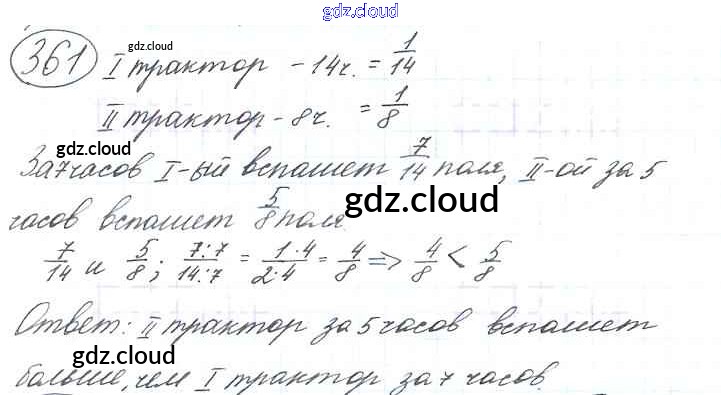 gdz.cloud
361 I трактор - 14ч. = 1/14
gdz.cloud
II трактор - 8ч. = 1/8
gdz.cloud
За 7 часов I-ый вспашет 7/14 поля, II-ой за 5
часов вспашет 5/8 поля.
gdz.cloud
7/14 и 5/8; 7:7/14:7 = 1·4/2·4 = 4/8 => 4/8 < 5/8
Ответ: II трактор за 5 часов вспашет
gdz.cloud
больше, чем I трактор за 7 часов.
gdz.cloud